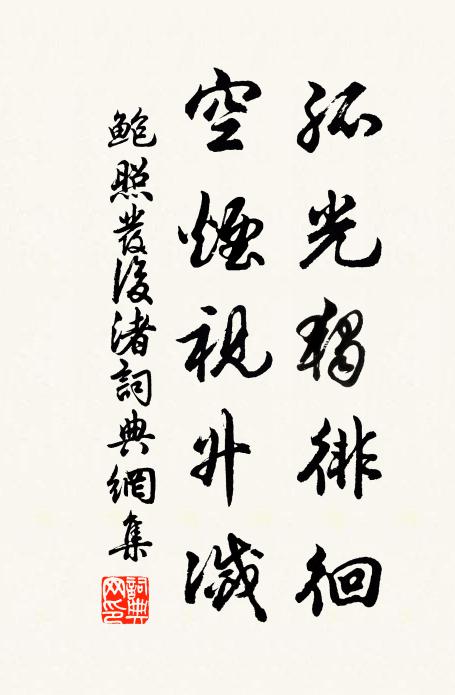 孤光獨徘徊
空煙視升滅
鮑照發後渚詞典網集
詞典网印